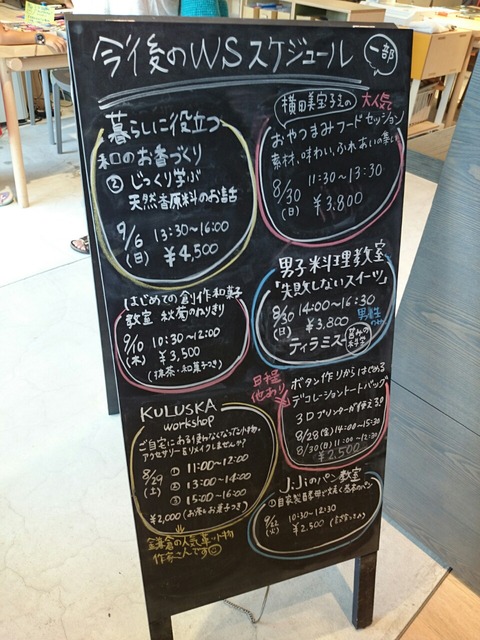 今後のWSスケジュール
一部
暮らしに役立つ
和のお香づくり
② じっくり学ぶ
天然香原料のお話
9/6 13:30~16:00
(日) ¥4,500
横田美宝子さんの 大人気
おやつまみフードセッション
素材、味わい、ふれあいの集い
8/30 11:30~13:30
(日) ¥3.800
はじめての創作和菓子
教室 秋菊のねりきり
9/10 10:30~12:00
(木) ¥3,500
(抹茶・和菓子つき)
男子料理教室
「失敗しないスイーツ」
8/30 14:00~16:30
(日) ¥3,800 男性
ティラミス
KULUSKA
workshop
ご自宅にある使わなくなった小物・
アクセサリーをリメイクしませんか?
8/29 ① 11:00~12:00
(土) ② 13:00~14:00
③ 15:00~16:00
¥2,000 (お茶とお菓子つき)
鎌倉の人気革小物
作家さんです
日程
他あり
ボタン作りからはじめる
デコレーショントートバッグ
3Dプリンターが使える
8/28(金) 14:00~15:30
8/30(日) 11:00~12:30
¥2.500
J:Jiのパン教室
①自家製酵母で大きく基本のパン
9/22 10:30~12:30
(火) ¥2.500